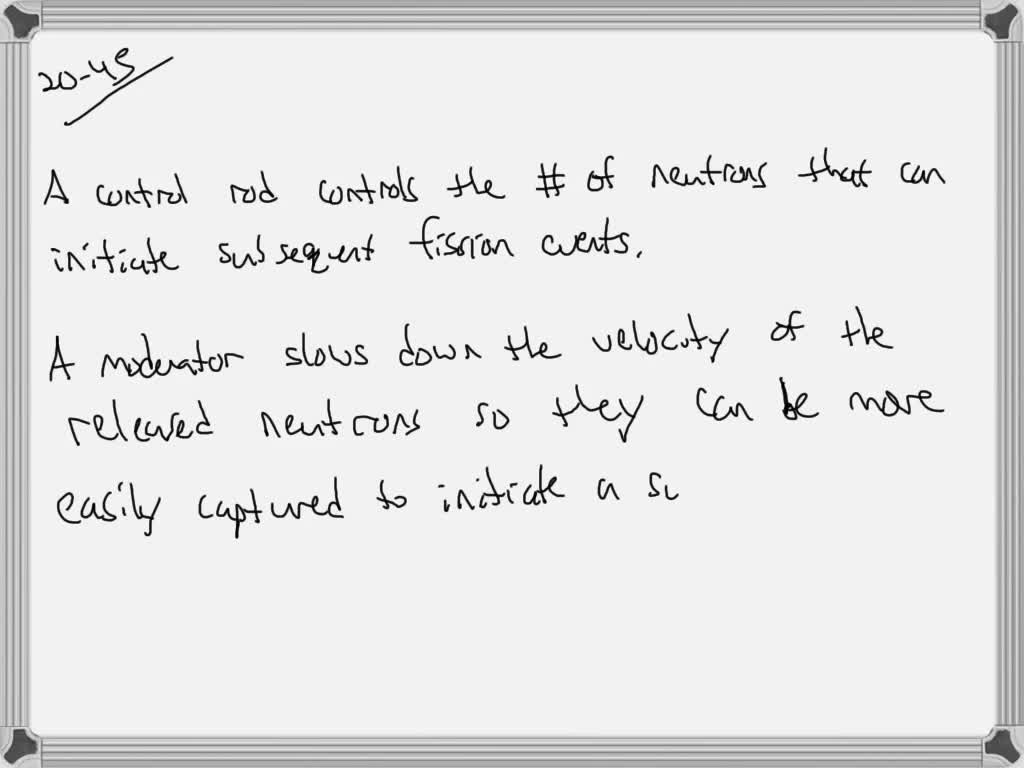 20-45
A control rod controls the # of neutrons that can
initiate subsequent fission events.
A moderator slows down the velocity of the
released neutrons so they can be more
easily captured to initiate a su